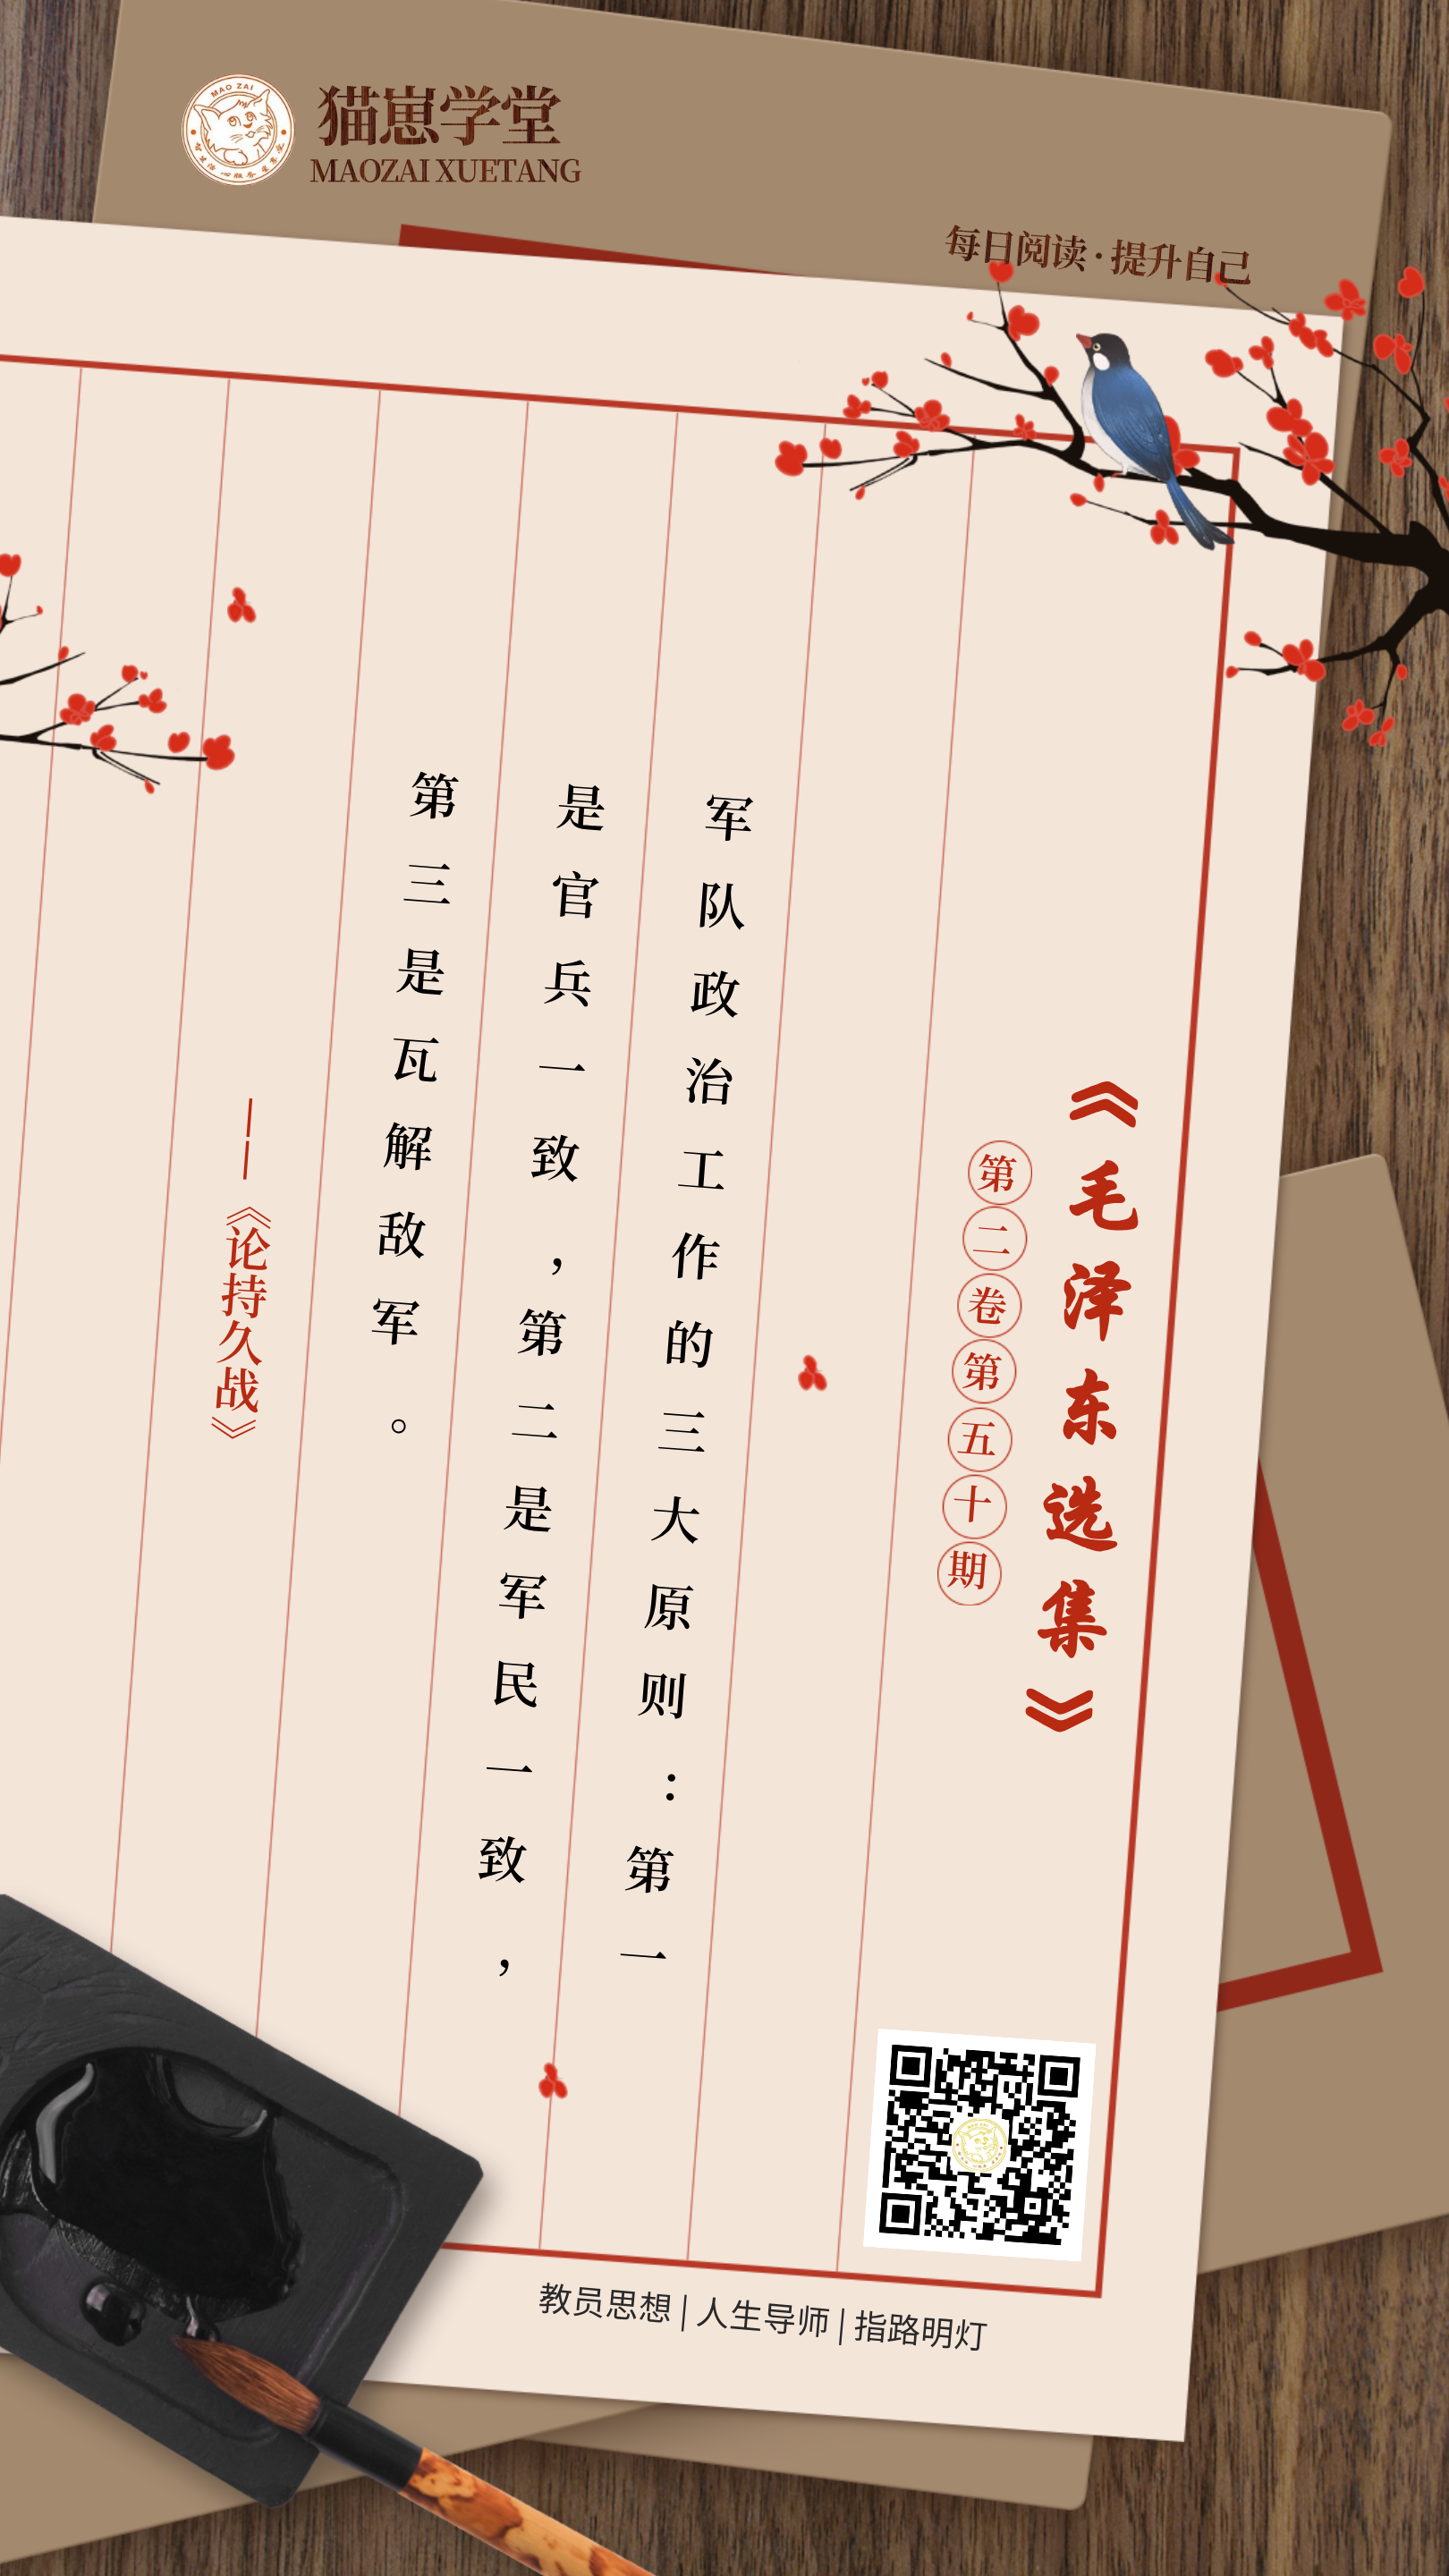 MAO ZAI
猫崽学堂
MAOZAI XUETANG
每日阅读·提升自己
《毛泽东选集》
第二卷第五十期
军队政治工作的三大原则：第一
是官兵一致，第二是军民一致，
第三是瓦解敌军。
——《论持久战》
教员思想|人生导师|指路明灯